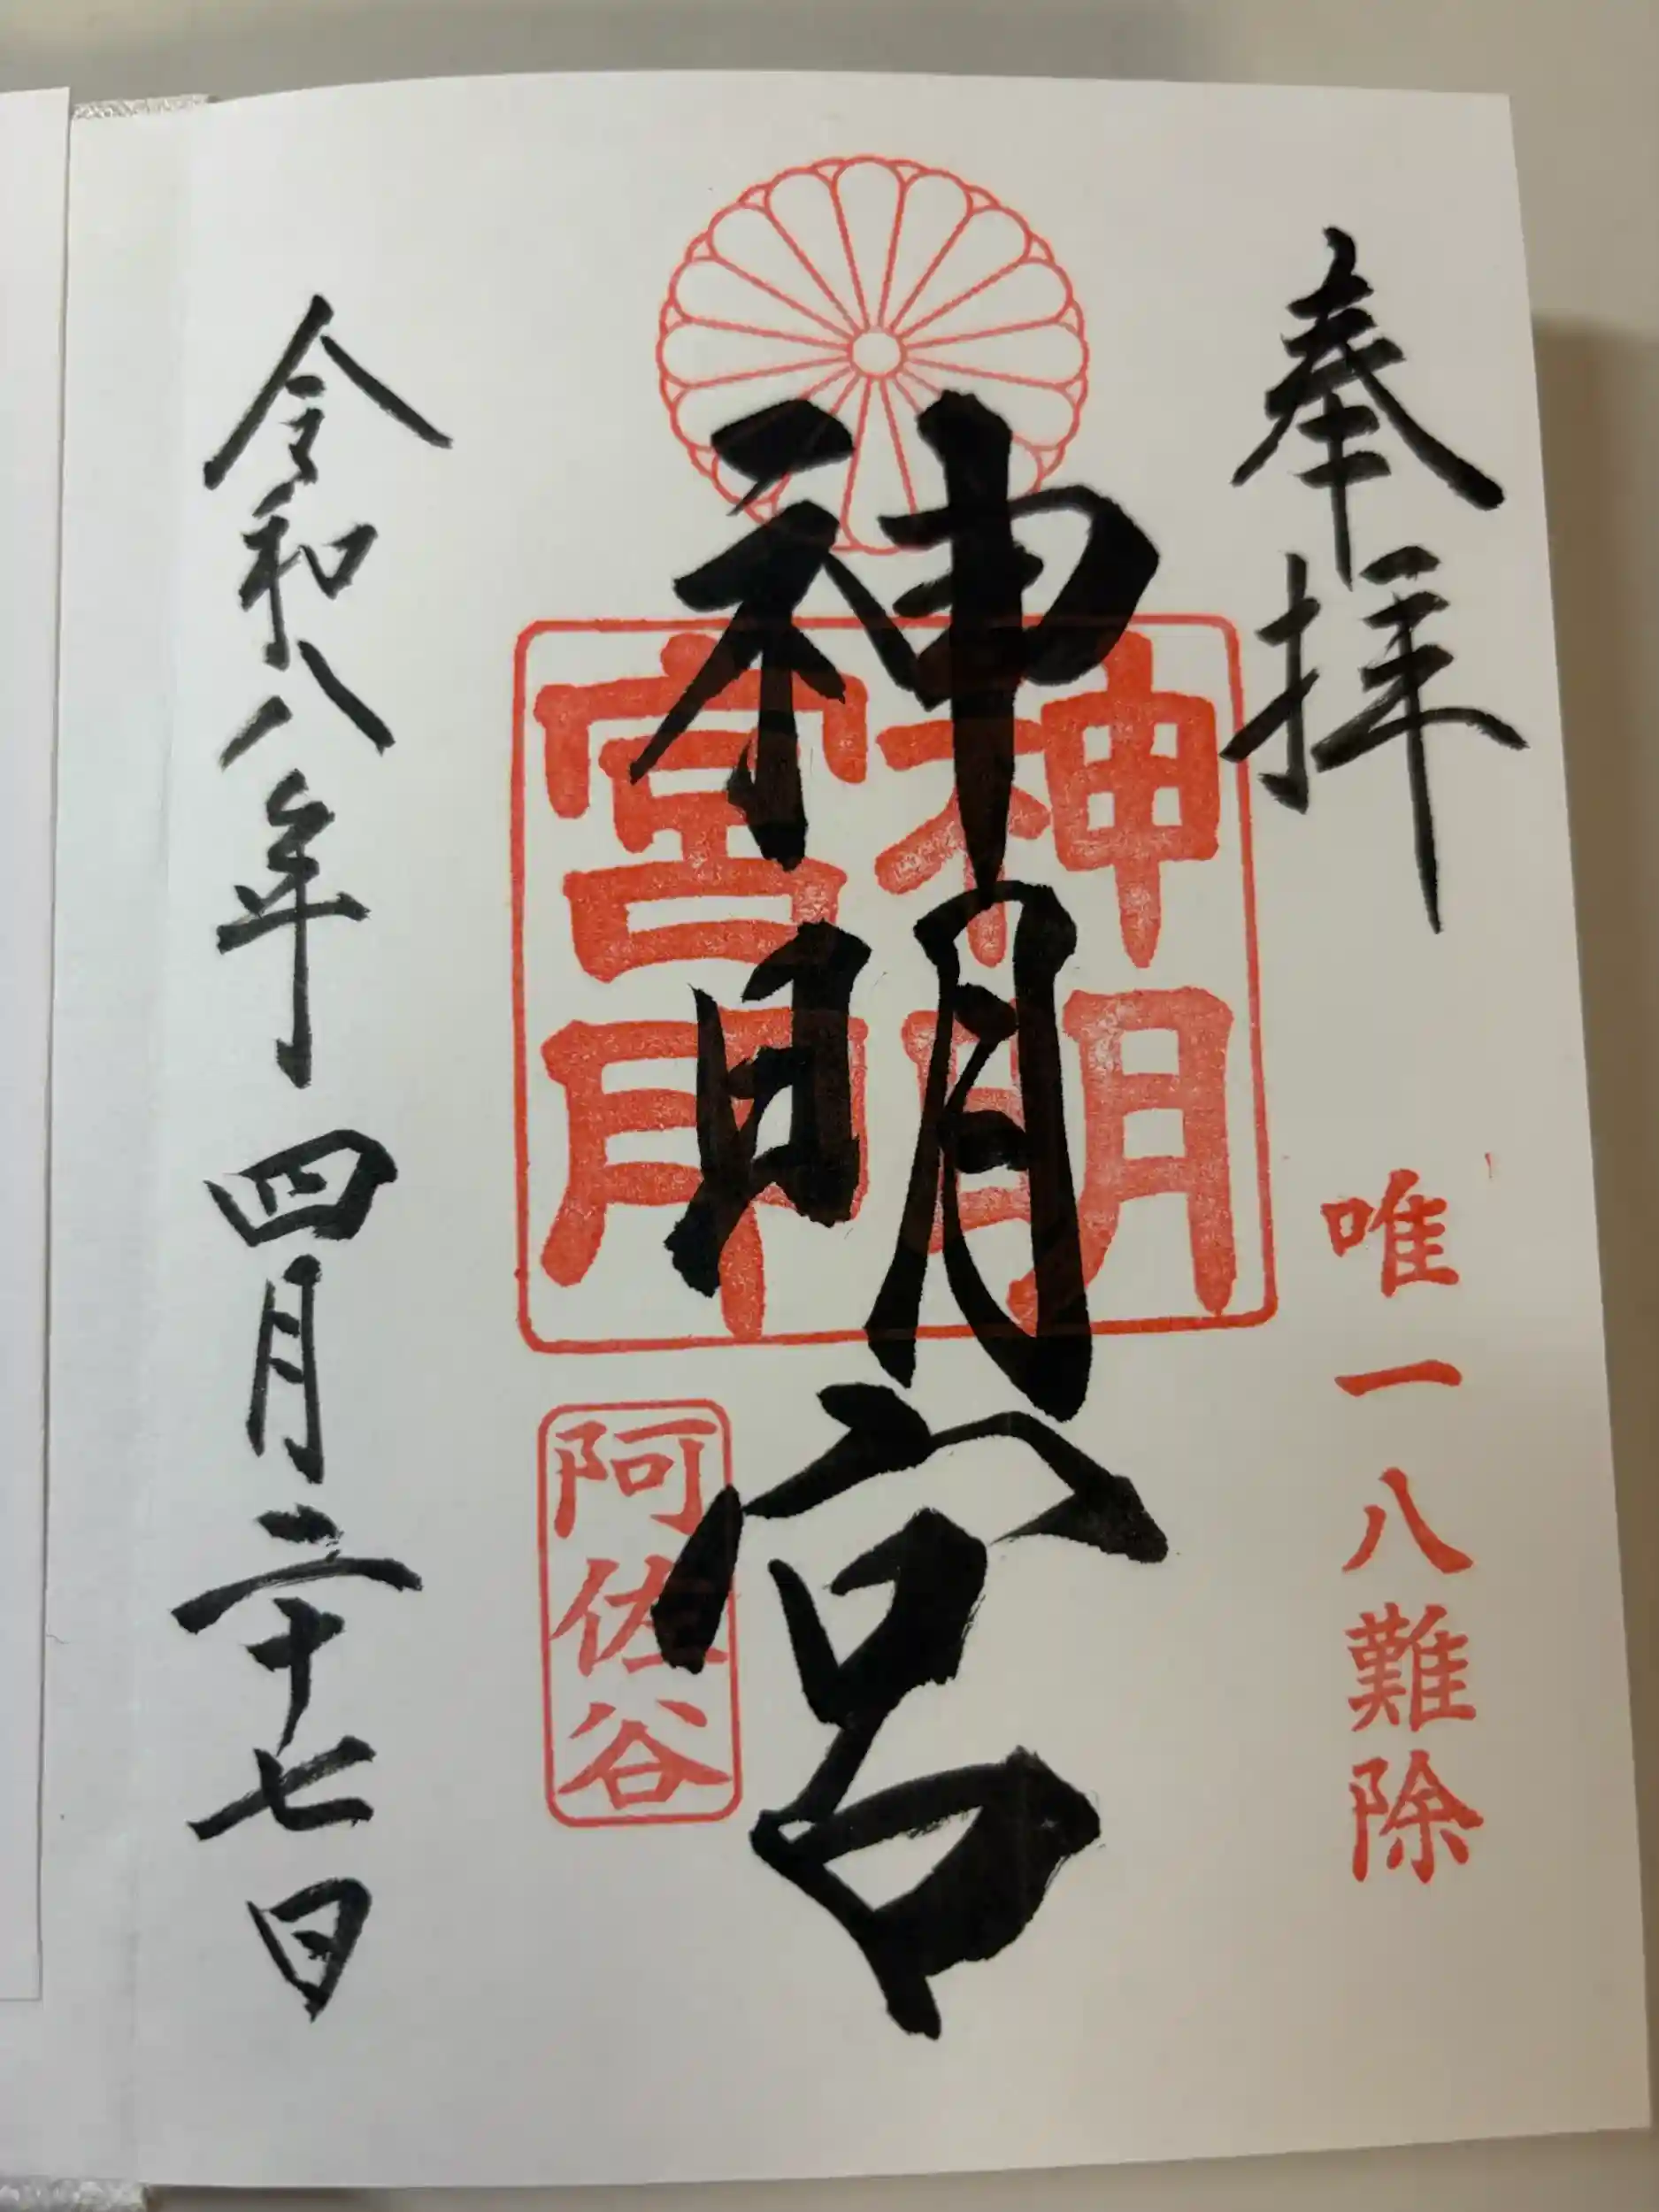 奉拝
唯一八難除
神明宮
神明宮印
阿佐谷
令和八年四月二十七日